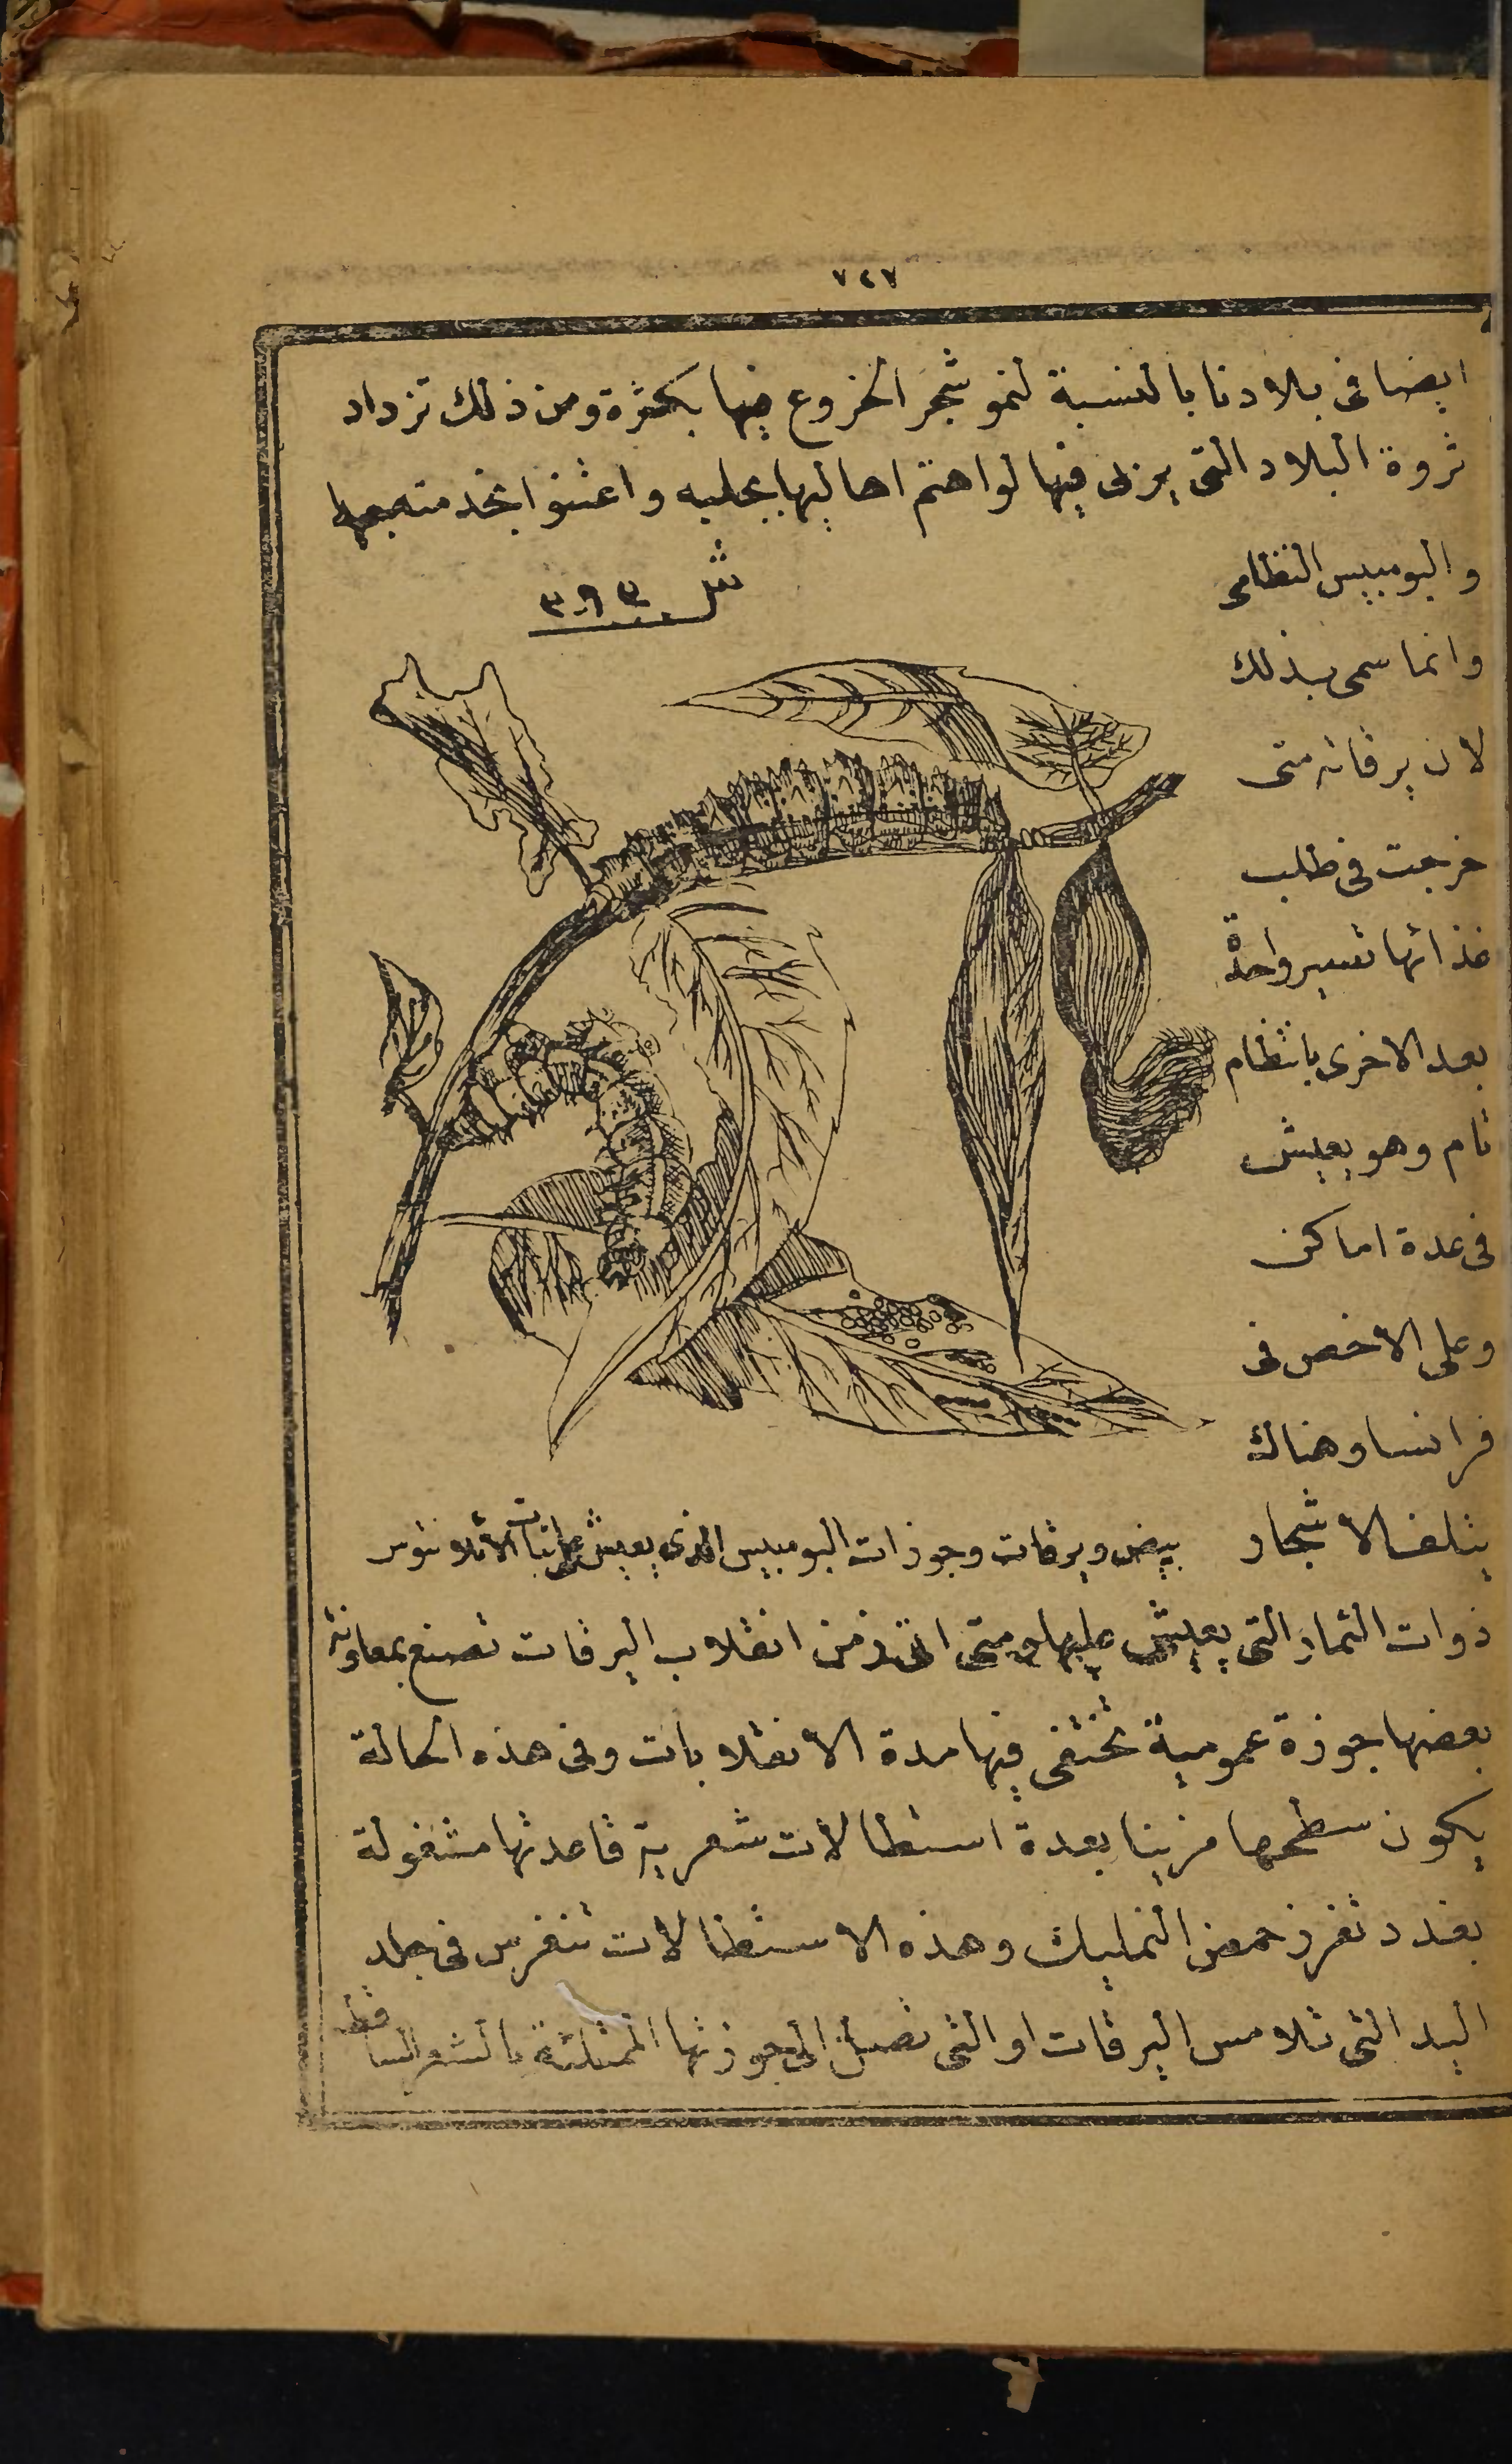 ٧٤٧
ايضا فى بلادنا بالنسبة لنمو شجر الخروع فيها بكثرة ومن ذلك تزداد
ثروة البلاد التى يربى فيها لو اهتم اهاليها بجلبه واعتنوا بخدمته
والبومبيس النظامى
وانما سمى بذلك
لان يرقاته متى
خرجت فى طلب
غذائها تسير واحدة
بعد الاخرى بانتظام
تام وهو يعيش
فى عدة اماكن
وعلى الاخص فى
فرانسا وهناك
يتلف الاشجار
شكل ٣٩٣
بيض ويرقات وجوزات البومبيس الذى يعيش على نبات الايلانتوس
ذوات الثمار التى يعيش عليها ومتى اتى زمن انقلاب اليرقات تصنع بمعاونة
بعضها جوزة عمومية تختفى فيها مدة الانقلابات وفى هذه الحالة
يكون سطحها مزينا بعدة استطالات شعرية قاعدتها مشغولة
بغدد تفرز حمض النمليك وهذه الاستطالات تنغرس فى جلد
اليد التى تلامس اليرقات او التى تصل الى جوزتها الممتلئة بالشعر الساقط